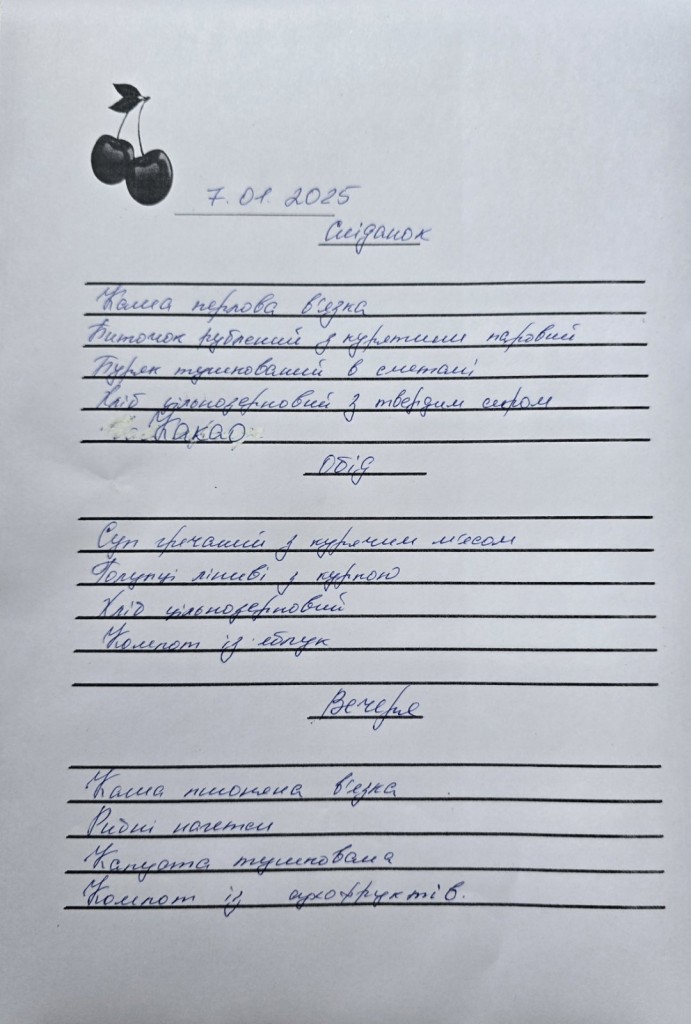 7.01.2025
Сніданок
Каша перлова в'язка
Биточок рублений з курятини паровий
Буряк тушкований в сметані
Хліб цільнозерновий з твердим сиром
Какао
Обід
Суп гречаний з курячим м'ясом
Голубці ліниві з куркою
Хліб цільнозерновий
Компот із яблук
Вечеря
Каша пшоняна в'язка
Рибні нагетси
Капуста тушкована
Компот із сухофруктів.